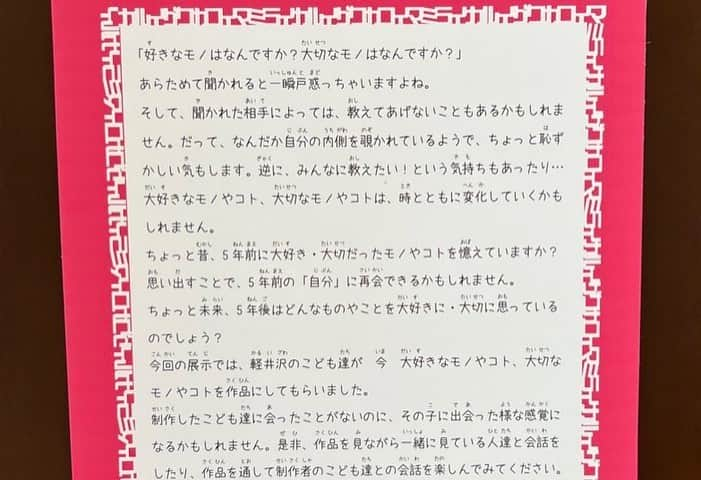 「好きなモノはなんですか？大切なモノはなんですか？」
あらためて聞かれると一瞬戸惑っちゃいますよね。
そして、聞かれた相手によっては、教えてあげないこともあるかもしれま
せん。だって、なんだか自分の内側を覗かれているようで、ちょっと恥ず
かしい気もします。逆に、みんなに教えたい！という気持ちもあったり…
大好きなモノやコト、大切なモノやコトは、時とともに変化していくかも
しれません。
ちょっと昔、5年前に大好き・大切だったモノやコトを憶えていますか？
思い出すことで、5年前の「自分」に再会できるかもしれません。
ちょっと未来、5年後はどんなものやことを大好きに・大切に思っている
のでしょう？
今回の展示では、軽井沢のこども達が　今　大好きなモノやコト、大切な
モノやコトを作品にしてもらいました。
制作したこども達に会ったことがないのに、その子に出会った様な感覚に
なるかもしれません。是非、作品を見ながら一緒に見ている人達と会話を
したり、作品を通して制作者のこども達との会話を楽しんでみてください。